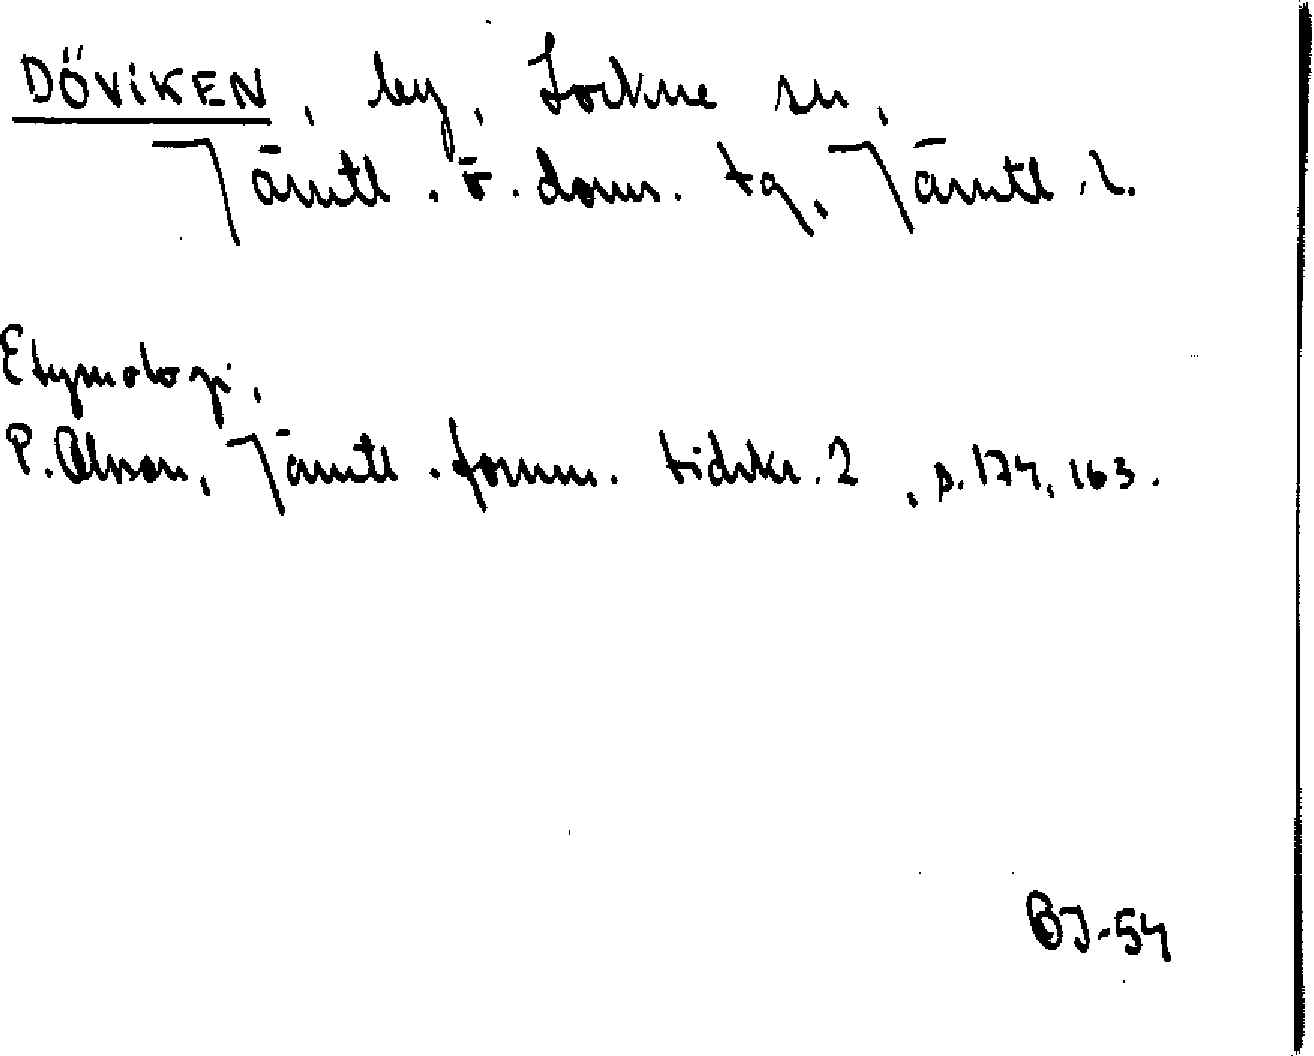 DÖVIKEN, by, Lockne sn,
Jämtl. ö. doms. tg, Jämtl. l.
Etymologi.
P. Olsson, Jämtl. fornm. tidskr. 2, s. 174, 163.
BJ-54